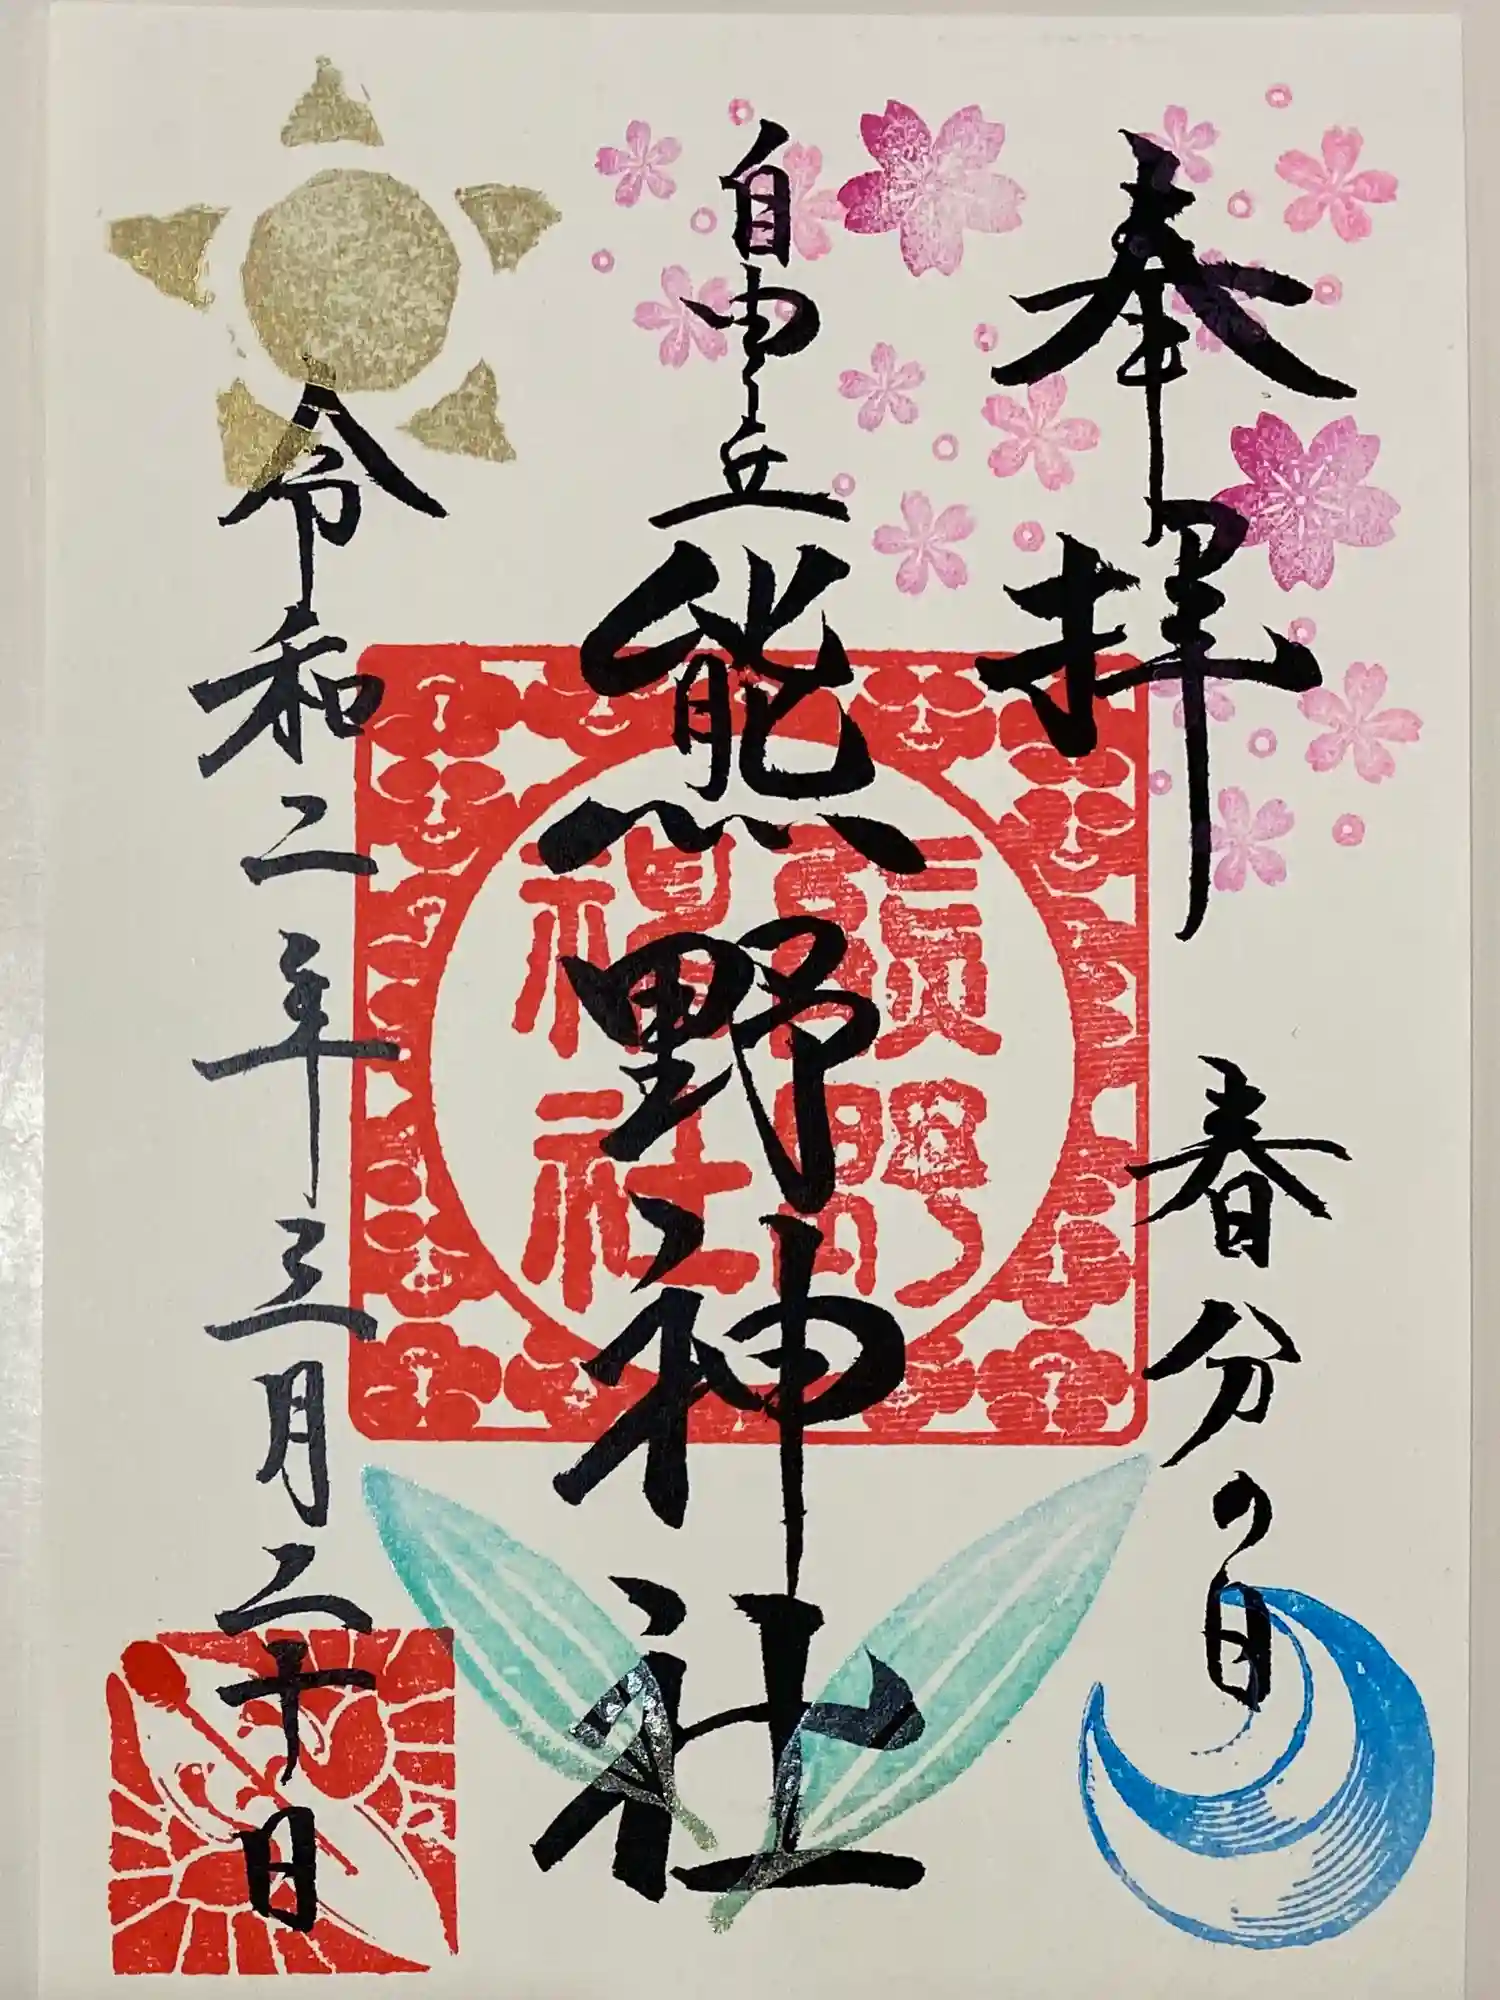 奉拝 春分の日
自由が丘熊野神社
熊野神社
令和二年三月二十日